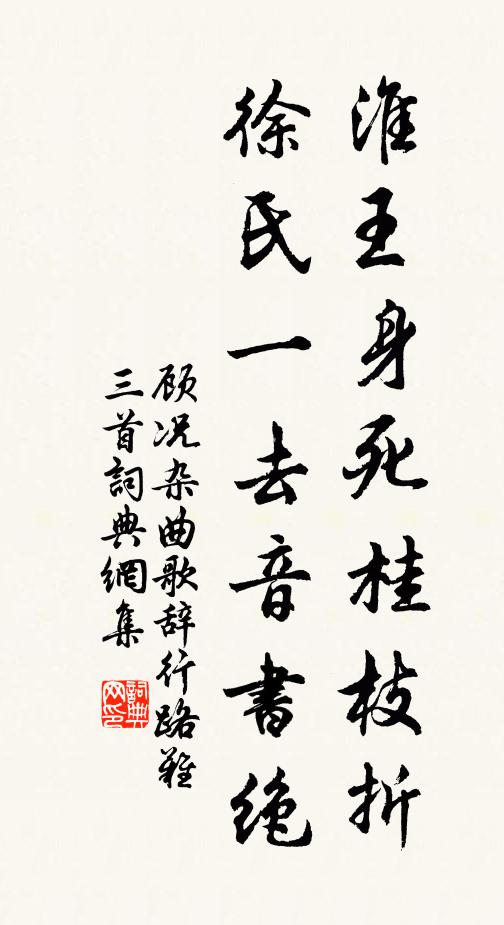 淮王身死桂枝折
徐氏一去音書绝
顾况杂曲歌辞行路难
三首詞典網集
詞典
网印